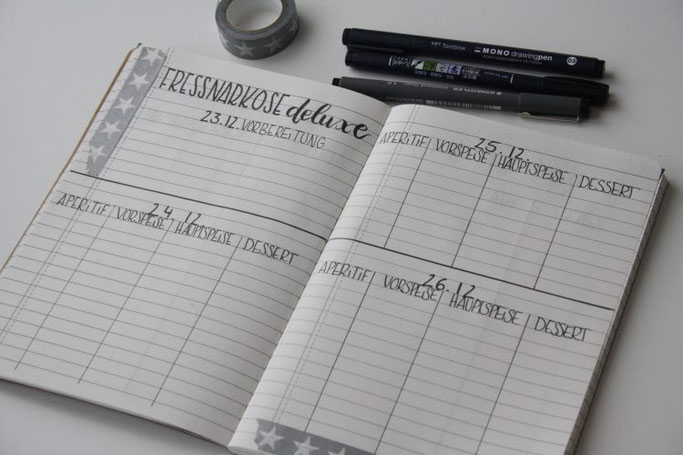 FRESSNARKOSE deluxe
23.12. VORBEREITUNG
24.12
APERITIF VORSPEISE HAUPTSPEISE DESSERT
25.12
APERITIF VORSPEISE HAUPTSPEISE DESSERT
26.12
APERITIF VORSPEISE HAUPTSPEISE DESSERT
Tombow MONO drawing pen 03